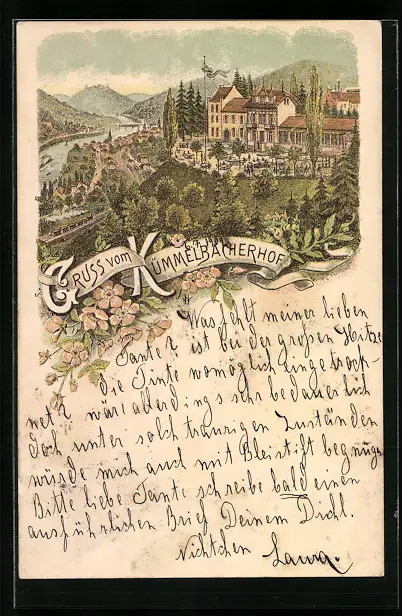 GRUSS VOM KÜMMELBACHERHOF
"Was fehlt meiner lieben
Tante? ist bei der grossen Hitze
die Tinte womöglich eingetrock-
net? wäre allerdings sehr bedauerlich
Doch unter solch traurigen Zuständen
würde mich auch mit Bleistift begnügen
Bitte liebe Tante schreibe bald einen
ausführlichen Brief Deinem Dichl.
Nichtchen Laura.